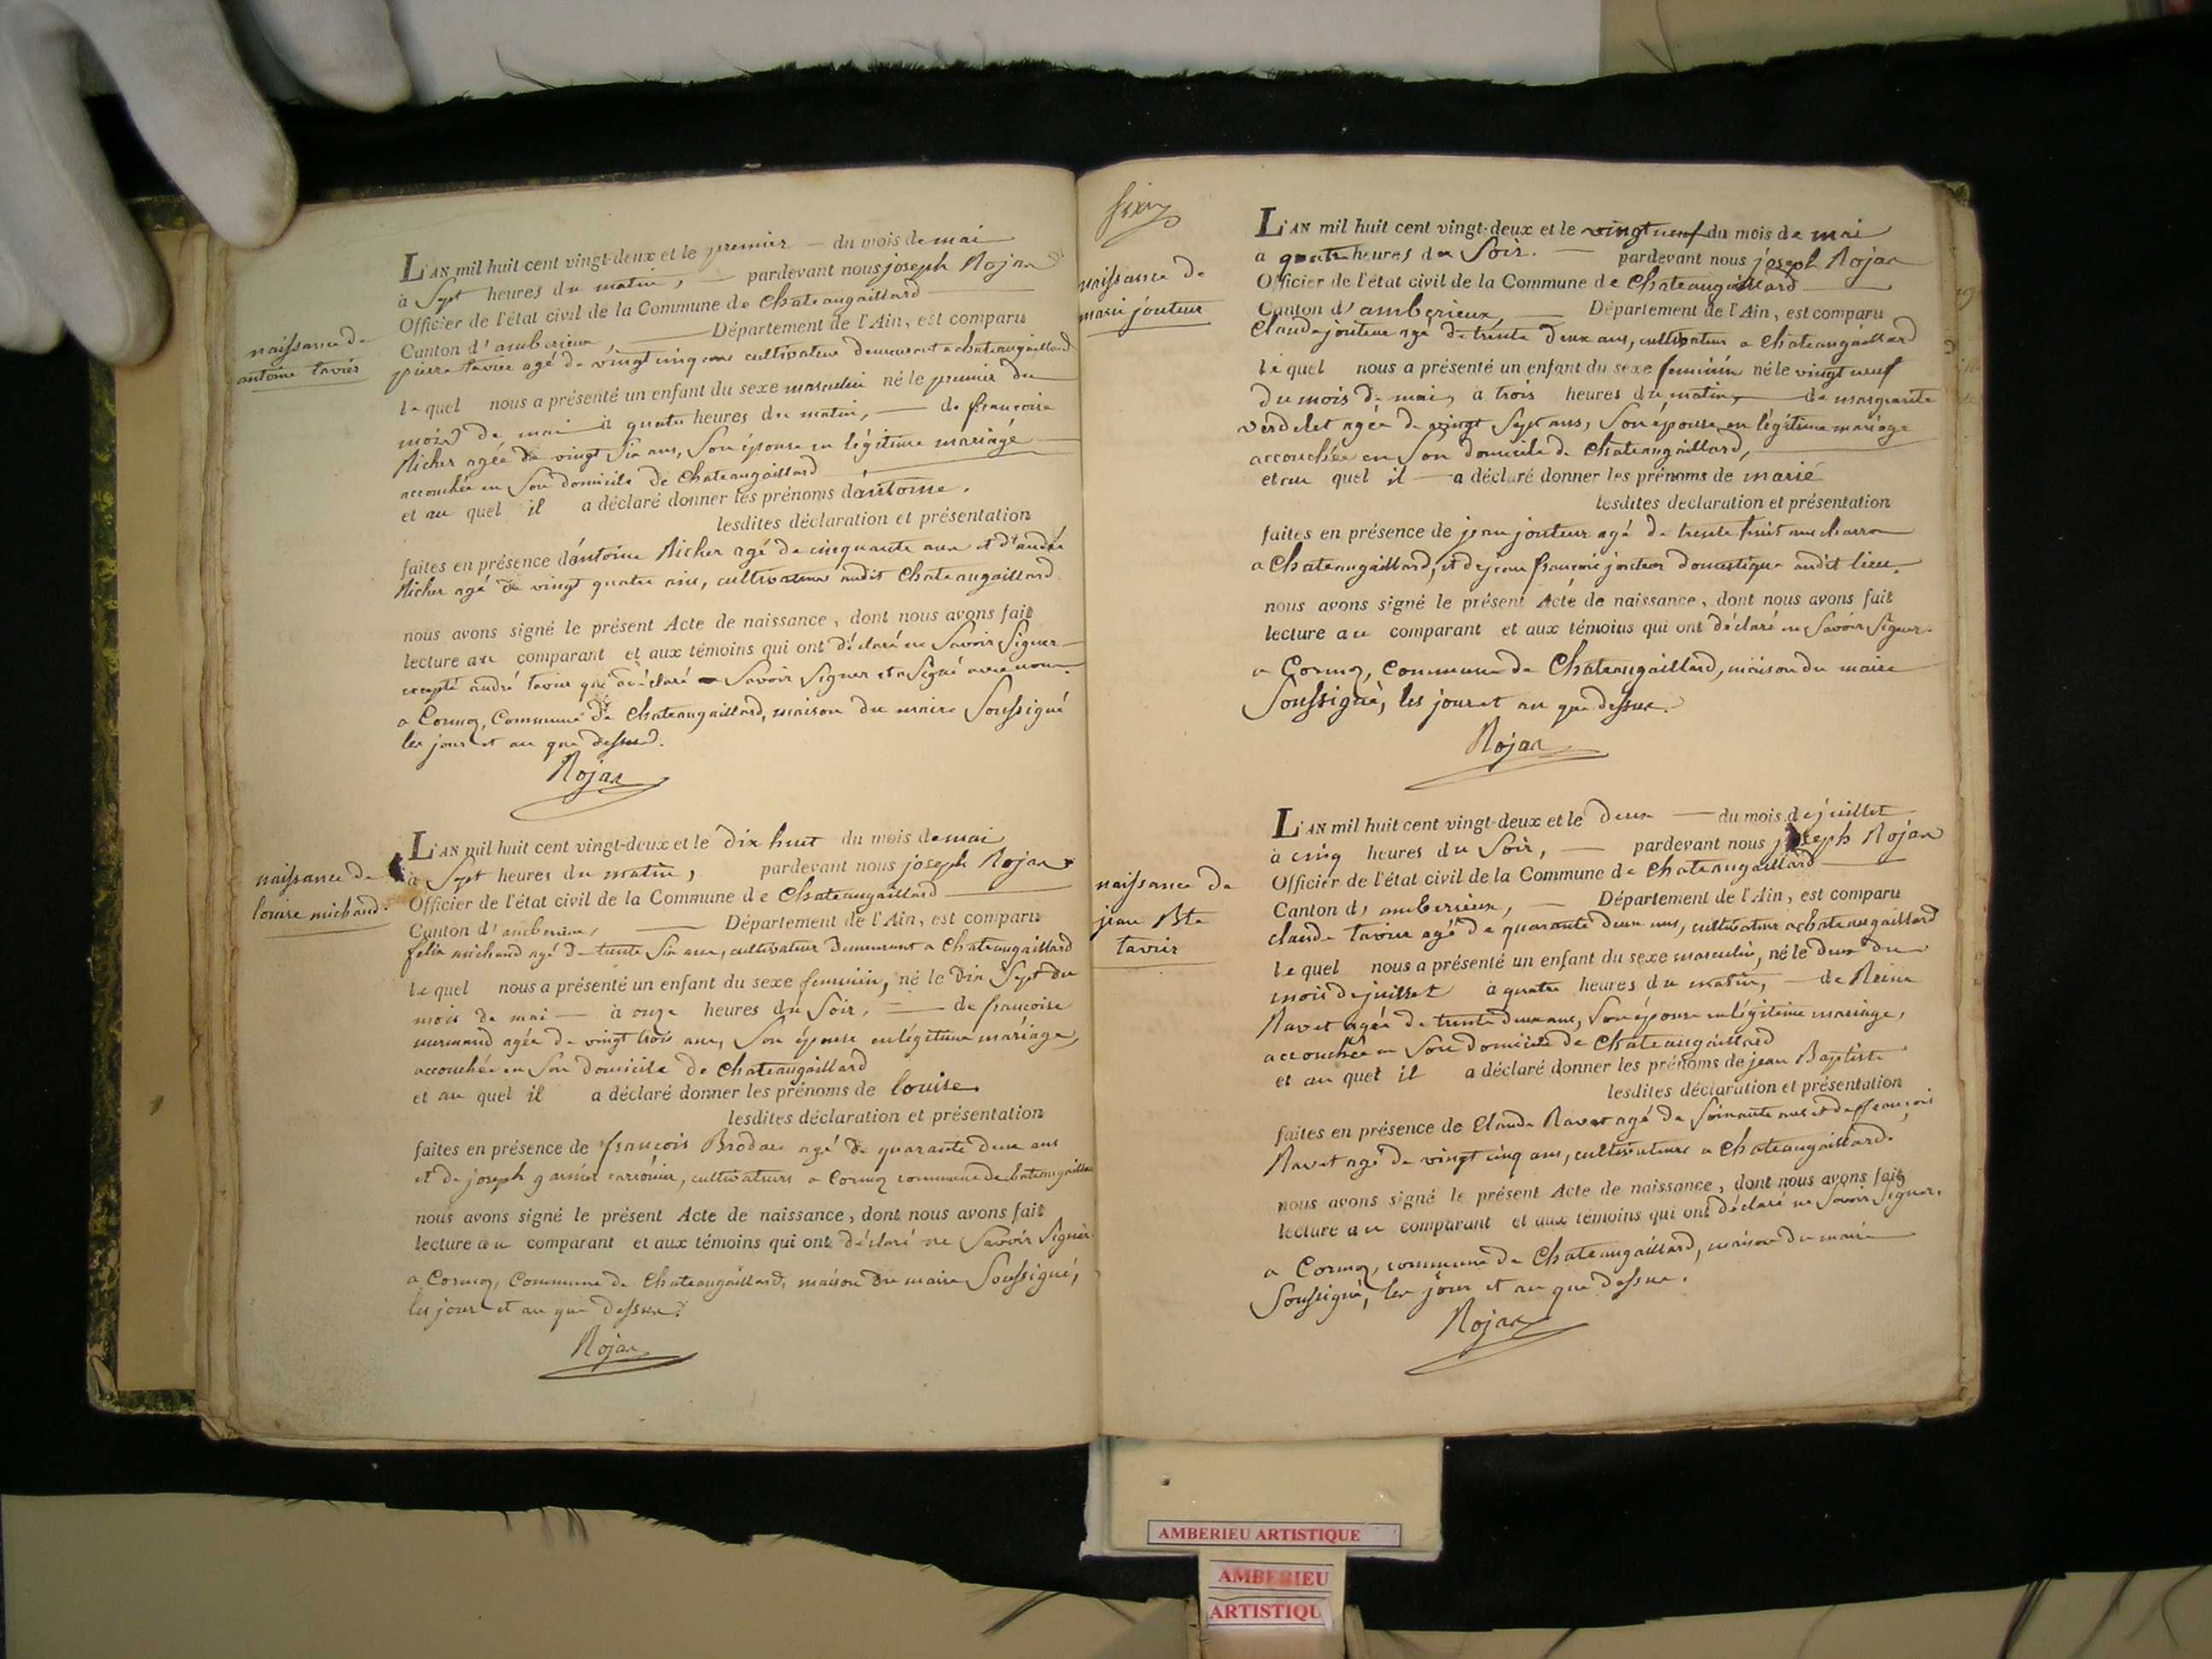 naissance de
antoine tavier
L'AN mil huit cent vingt-deux et le premier — du mois de mai
à Sept heures du matin, — pardevant nous joseph Rojas
Officier de l'état civil de la Commune de Chateaugaillard
Canton d'amberieux, — Département de l'Ain, est comparu
pierre tavier agé de vingt cinq ans cultivateur demeurant a chateaugaillard
le quel nous a présenté un enfant du sexe masculin né le premier du
mois de mai à quatre heures du matin, — de francoise
Richer agée de vingt Six ans, Son épouse en légitime mariage
accouchée en Son domicile de Chateaugaillard
et au quel il a déclaré donner les prénoms d'antoine.
lesdites déclaration et présentation
faites en présence d'antoine Richer agé de cinquante ans et d'andré
Richer agé de vingt quatre ans, cultivateurs audit Chateaugaillard
nous avons signé le présent Acte de naissance, dont nous avons fait
lecture au comparant et aux témoins qui ont déclaré ne Savoir Signer
excepté andré tavier qui a déclaré Savoir Signer et a Signé avec nous
a Cormoz, Commune de Chateaugaillard, maison du maire Soussigné
les jour et an que dessus.
Rojas
naissance de
louise michaud.
L'AN mil huit cent vingt-deux et le dix huit du mois de mai
à Sept heures du matin, pardevant nous joseph Rojas
Officier de l'état civil de la Commune de Chateaugaillard
Canton d'amberieux, — Département de l'Ain, est comparu
felix michaud agé de trente Six ans, cultivateur demeurant a Chateaugaillard
le quel nous a présenté un enfant du sexe feminin, né le dix Sept du
mois de mai — à onze heures du Soir, — de francoise
murmand agée de vingt trois ans, Son épouse en légitime mariage,
accouchée en Son domicile de Chateaugaillard
et au quel il a déclaré donner les prénoms de louise.
lesdites déclaration et présentation
faites en présence de françois Brodare agé de quarante deux ans
et de joseph garnier, cultivateurs a Cormoz commune de chateaugaillard
nous avons signé le présent Acte de naissance, dont nous avons fait
lecture au comparant et aux témoins qui ont déclaré ne Savoir Signer
a Cormoz, Commune de Chateaugaillard, maison du maire Soussigné,
les jour et an que dessus.
Rojas
naissance de
marie jouteur
L'AN mil huit cent vingt-deux et le vingt neuf du mois de mai
à quatre heures du Soir. — pardevant nous joseph Rojas
Officier de l'état civil de la Commune de Chateaugaillard
Canton d'amberieux, — Département de l'Ain, est comparu
Claude jouteur agé de trente deux ans, cultivateur a Chateaugaillard
le quel nous a présenté un enfant du sexe feminin né le vingt neuf
du mois de mai, à trois heures du matin, — de marguerite
verdelet agée de vingt Sept ans, Son épouse en légitime mariage
accouchée en Son domicile de Chateaugaillard,
et au quel il — a déclaré donner les prénoms de marie
lesdites declaration et présentation
faites en présence de jean jouteur agé de trente huit ans charron
a Chateaugaillard, et de jean françois jouteur domestique audit lieu.
nous avons signé le présent Acte de naissance, dont nous avons fait
lecture au comparant et aux témoins qui ont déclaré ne Savoir Signer.
a Cormoz, Commune de Chateaugaillard, maison du maire
Soussigné, les jour et an que dessus.
Rojas
naissance de
jean Bte
tavier
L'AN mil huit cent vingt-deux et le deux — du mois de juillet
à cinq heures du Soir, — pardevant nous joseph Rojas
Officier de l'état civil de la Commune de Chateaugaillard
Canton d'amberieux, — Département de l'Ain, est comparu
claude tavier agé de quarante deux ans, cultivateur a chateaugaillard
le quel nous a présenté un enfant du sexe masculin, né le deux du
mois de juillet à quatre heures du matin, — de Reine
Ravet agée de trente deux ans, Son épouse en légitime mariage,
accouchée en Son domicile de Chateaugaillard
et au quel il a déclaré donner les prénoms de jean Baptiste
lesdites déclaration et présentation
faites en présence de Claude Ravet agé de Soixante ans et de françois
Ravet agé de vingt cinq ans, cultivateurs a Chateaugaillard.
nous avons signé le présent Acte de naissance, dont nous avons fait
lecture au comparant et aux témoins qui ont déclaré ne Savoir Signer.
a Cormoz, commune de Chateaugaillard, maison du maire
Soussigné, les jour et an que dessus.
Rojas
AMBERIEU ARTISTIQUE
AMBERIEU
ARTISTIQU